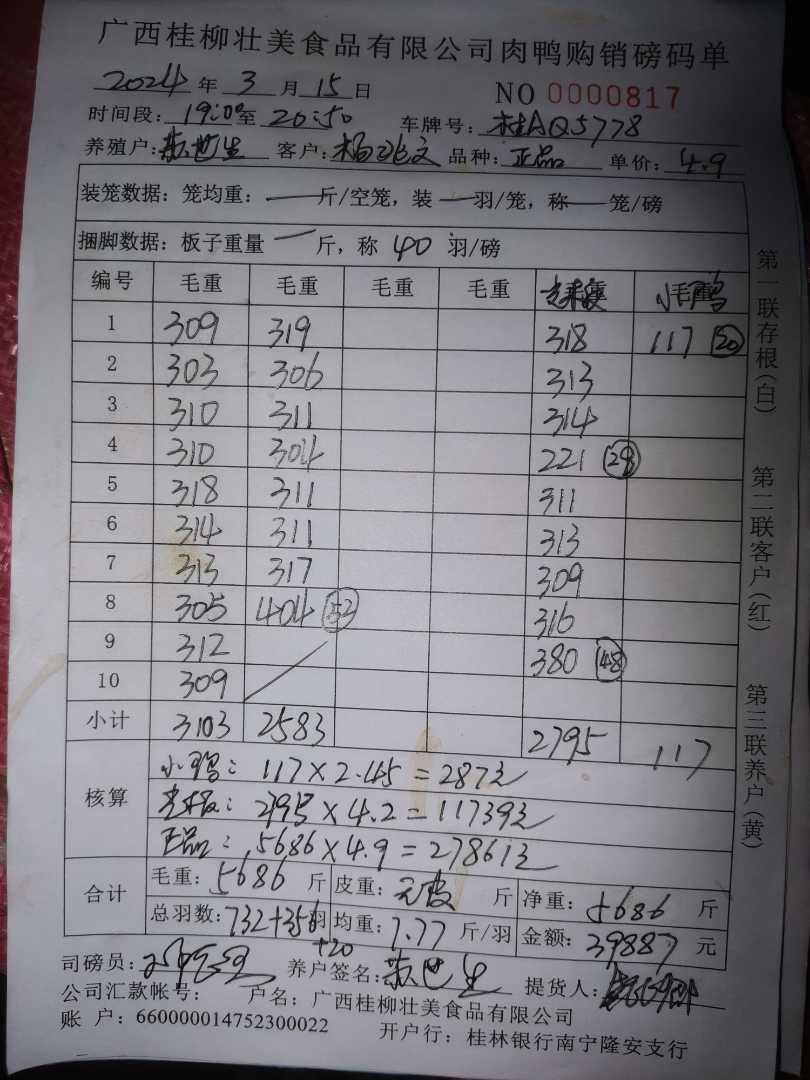 广西桂柳壮美食品有限公司肉鸭购销磅码单
2024 年 3 月 15 日 NO 0000817
时间段: 19:00 至 20:50 车牌号: 桂AQ5778
养殖户: 苏世生 客户: 杨兆文 品种: 正品 单价: 4.9
装笼数据: 笼均重: — 斤/空笼, 装 — 羽/笼, 称 — 笼/磅
捆脚数据: 板子重量 — 斤, 称 40 羽/磅
编号 毛重 毛重 毛重 毛重 毛重 小鸭
1 309 319 318 117 (20)
2 303 306 313
3 310 311 314
4 310 304 221 (28)
5 318 311 311
6 314 311 313
7 313 317 309
8 305 404 (52) 316
9 312 380 (48)
10 309
小计 3103 2583 2795 117
核算 小鸭: 117 × 2.45 = 287元
光板: 2795 × 4.2 = 11739元
正品: 5686 × 4.9 = 27861元
合计 毛重: 5686 斤 皮重: 无皮 斤 净重: 5686 斤
总羽数: 732+356 羽 均重: 7.77 斤/羽 金额: 39887 元
+20
司磅员: 养户签名: 苏世生 提货人:
公司汇款帐号: 户名: 广西桂柳壮美食品有限公司
账 户: 660000014752300022 开户行: 桂林银行南宁隆安支行
第一联存根(白) 第二联客户(红) 第三联养户(黄)